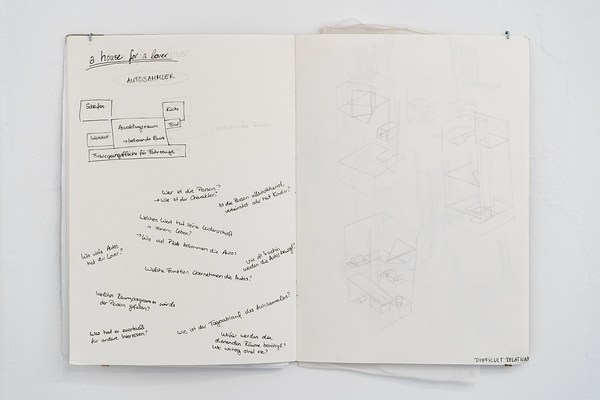 a house for a lover
AUTOSAMMLER
Schlafen
Küche
Ausstellungsraum
Bad
→ bedienende Räume
Wer ist die Person?
→ Wie ist der Charakter?
Ist die Person alleinstehend,
verheiratet oder hat Kinder?
Welchen Wert hat seine Leidenschaft
in seinem Leben?
→ Wie viel Platz bekommen die Autos
Wie viele Autos
hat der Lover?
werden die Autos bewegt?
Welche Funktion übernehmen die Autos?
Welches Raumprogramm würde
der Person gefallen?
Wie ist der Tagesablauf des Autosammlers?
Was hat er außerhalb
für andere Interessen?
Wofür werden die
dienenden Räume benötigt?
Wie wichtig sind sie?
DIFFICULT RELATION